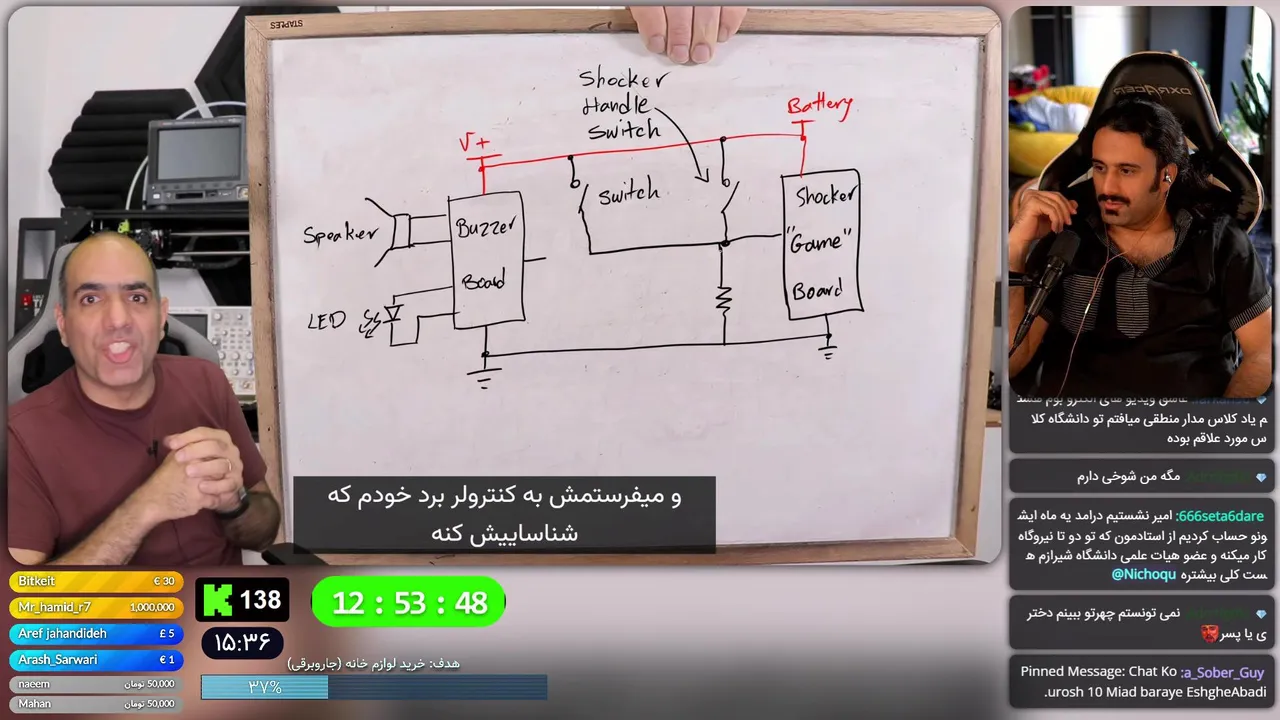 STAPLES
Shocker
Handle
Switch
Battery
V+
Switch
Shocker
"Game"
Board
Buzzer
Board
Speaker
LED
و میفرستمش به کنترولر برد خودم که
شناساییش کنه
DXRACER
عاشق ویدیو های الکترو بوم هستم
م یاد کلاس مدار منطقی میافتم تو دانشگاه کلا
س مورد علاقم بوده
مگه من شوخی دارم
666seta6dare: امیر نشستیم درامد یه ماه ایش
ونو حساب کردیم از استادمون که تو دو تا نیروگاه
کار میکنه و عضو هیات علمی دانشگاه شیرازم ه
ست کلی بیشتره @Nichoqu
نمی تونستم چهرتو ببینم دختر
ی یا پسر
Pinned Message: Chat Ko :a_Sober_Guy
.urosh 10 Miad baraye EshgheAbadi
Bitkeit € 30
Mr_hamid_r7 1,000,000
Aref jahandideh £ 5
Arash_Sarwari € 1
naeem 50,000 تومان
Mahan 50,000 تومان
K 138
12 : 53 : 48
۱۵:۳۶
هدف: خرید لوازم خانه (جاروبرقی)
۳۷%